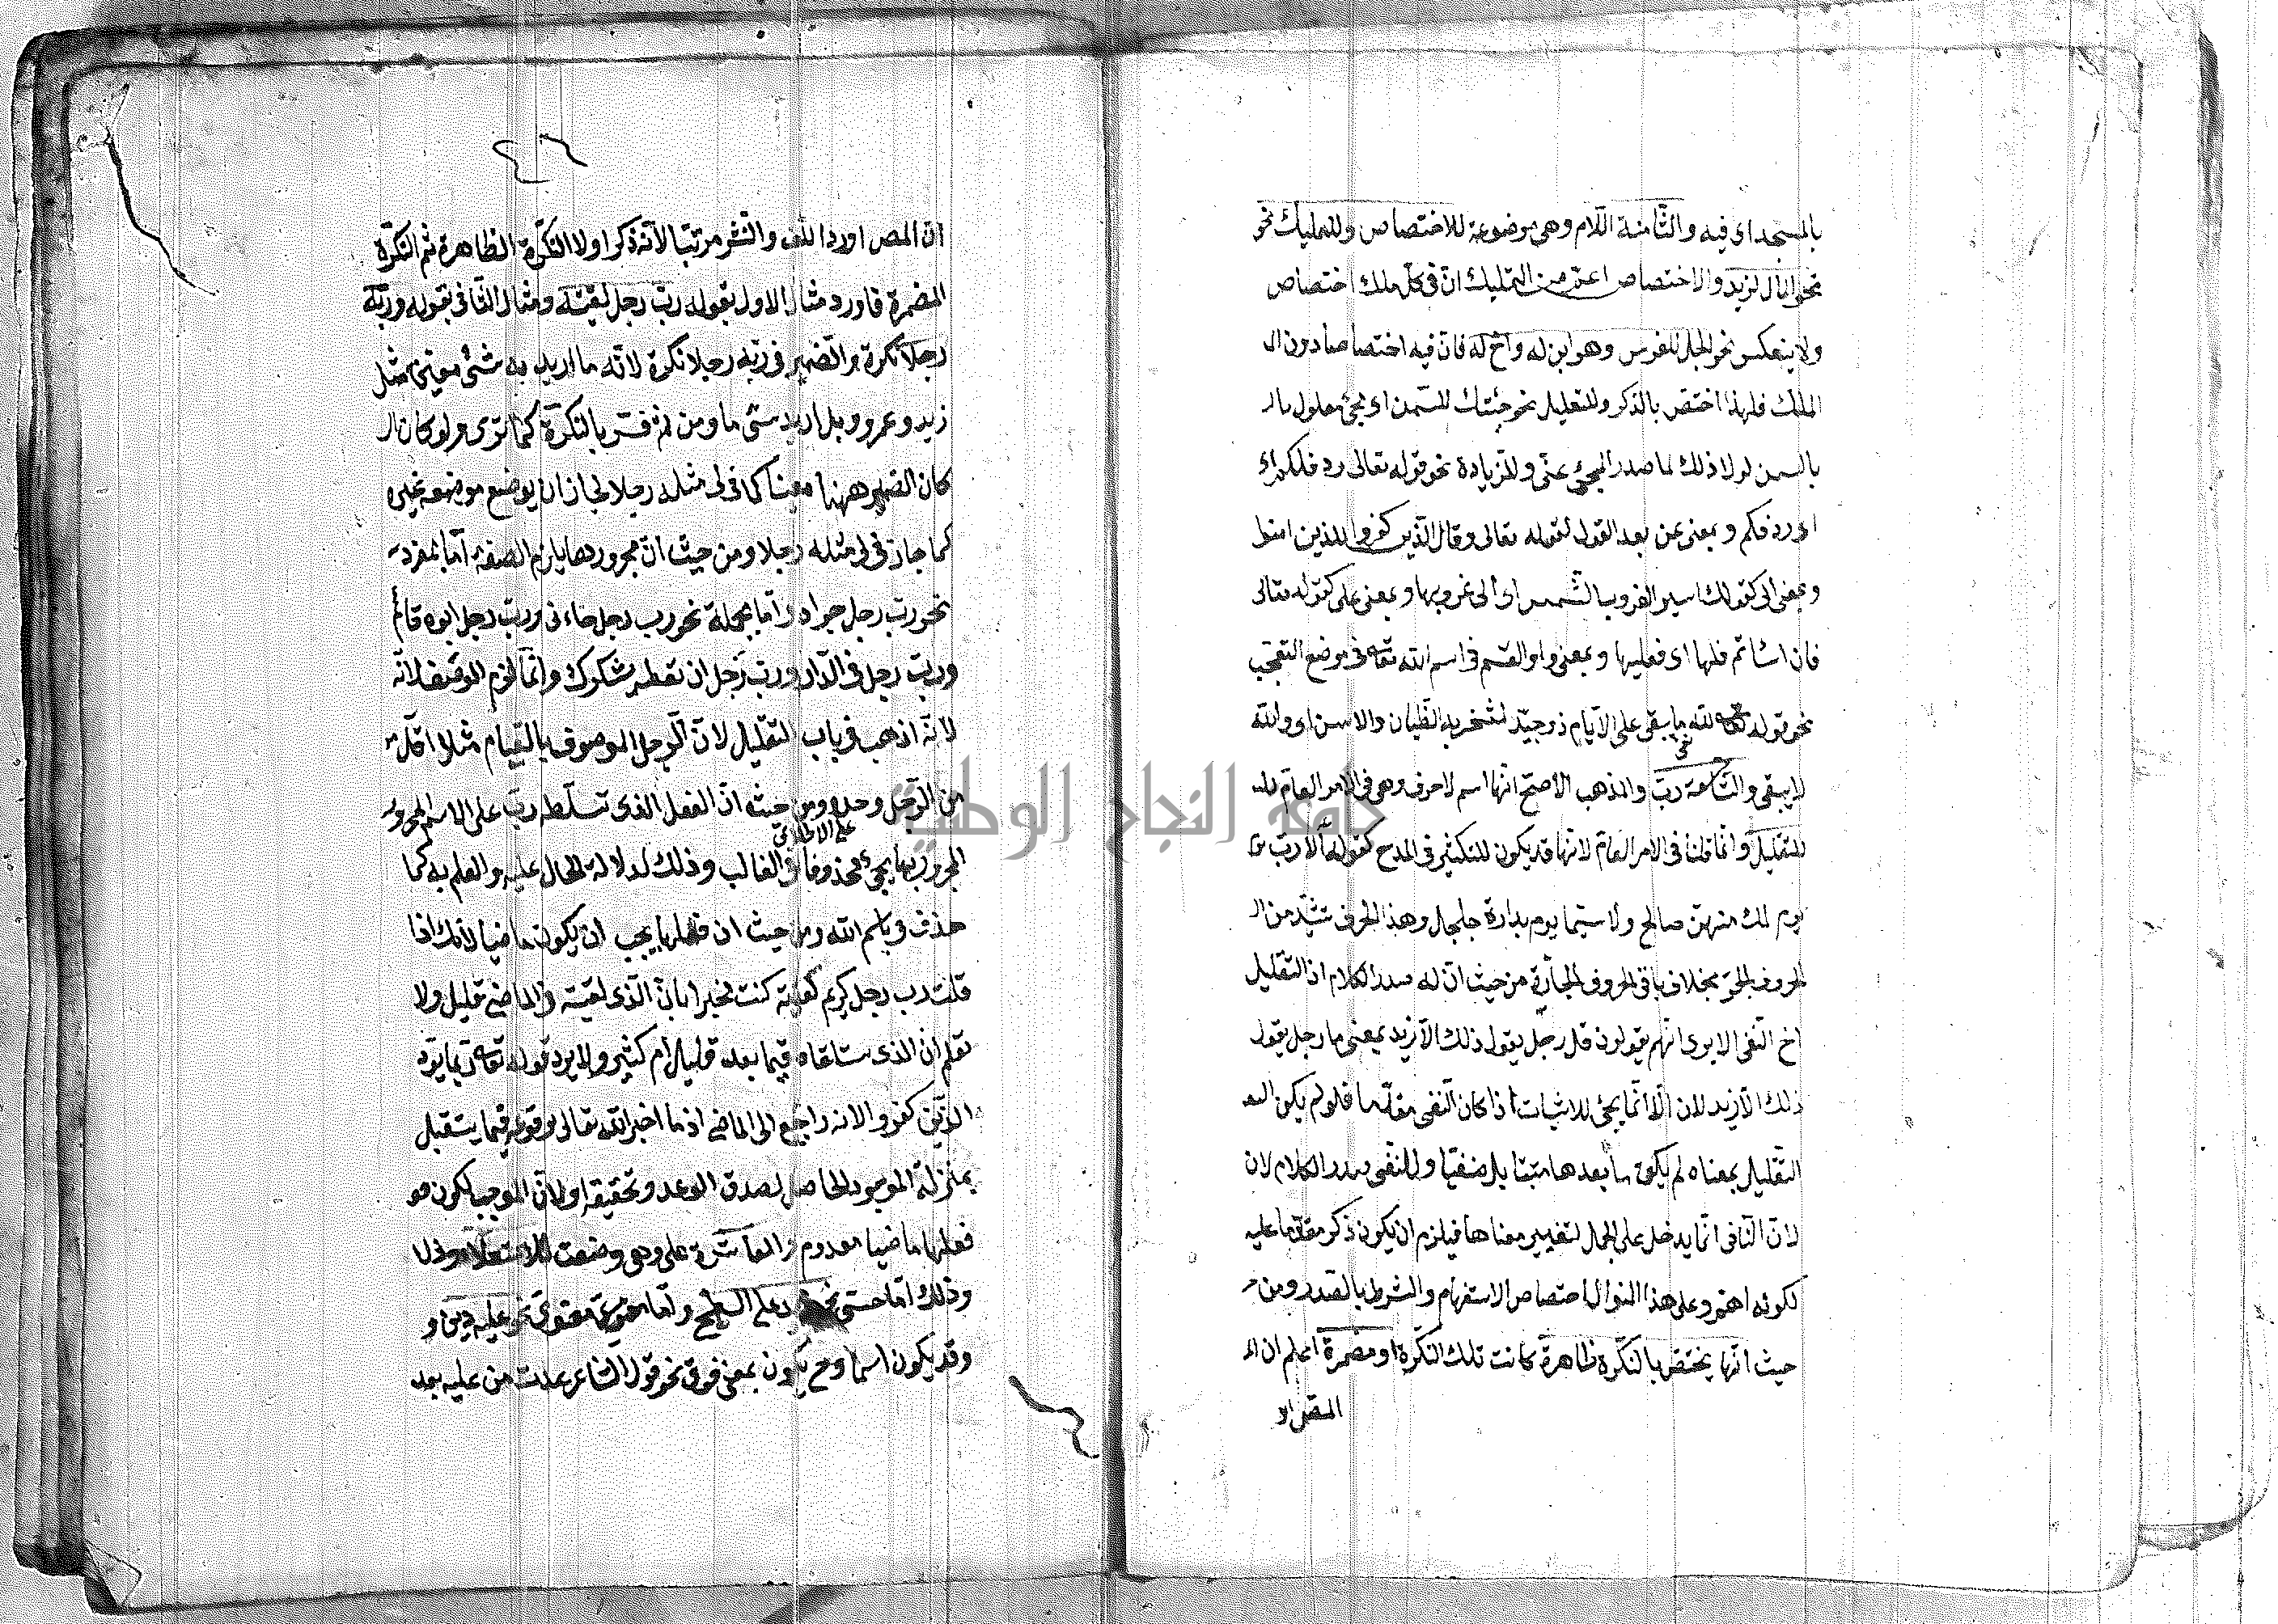 بالمسجد اى فيه والثامنة اللام وهى موضوعة للاختصاص وللتمليك نحو
نحو المال لزيد والاختصاص اعم من التمليك ان فى كل ملك اختصاص
ولا ينعكس نحو الجل للفرس وهو ابن له واخ له فان فيه اختصاصا دون ال
الملك فلهذا اختص بالذكر وللتعليل نحو جئتك للسمن اى مجئ معلول بال
بالسمن لولا ذلك لما صدر المجئ عنى وللزيادة نحو قوله تعالى ردف لكم اى
اى ردفكم وبمعنى عن بعد القول لقوله تعالى وقال الذين كفروا للذين امنوا
وبمعنى الى كقولك اسير لغروب الشمس اى الى غروبها وبمعنى على كقوله تعالى
فان اسأتم فلها اى فعليها وبمعنى واو القسم فى اسم الله تعالى فى موضع التعجب
نحو قوله لله ما يبقى على الايام ذو حيد لمشخر به الظيان والاس اى والله
لا يبقى والتاسعة رب والمذهب الاصح انها اسم لا حرف وهى فى الامر العام للت
للتقليل وانما قلنا فى الامر العام لانها قد يكون للتكثير فى المدح كقوله ألا رب
يوم لك منهن صالح ولا سيما يوم بدارة جلجل وهذا الحرف من ال
الحروف الجر بخلاف باقى الحروف الجارة من حيث ان له صدر الكلام اذ التقليل
اخ النفى الا يرى انهم يقولون قل رجل يقول ذلك الا زيد بمعنى ما رجل يقول
ذلك الا زيد لان الا انما يجئ للاثبات اذا كان النفى مقدما فلو لم يكن
التقليل بمعناه لم يكن ما بعدها مثبتا بل منفيا وللنفى صدر الكلام لان
لان النافى انما يدخل على الجمل لتغيير معناها فيلزم ان يكون ذكره مقدما عليه
لكونه اهم وعلى هذا المنوال اختصاص الاستفهام والشرط بالصدر ومن
حيث انها يختص بالنكرة ظاهرة كانت تلك النكرة او مضمرة اعلم ان ال
المص او
ان المص اورد اللف والنشر مرتبا لانه ذكر اولا النكرة الظاهرة ثم النكرة
المضمرة فاورد مثال الاول بقوله رب رجل لقيته ومثال الثانى بقوله وربه
رجلا نكرة والضمير فى ربه رجلا نكرة لانه ما اريد به شئ معين مثل
زيد وعمرو وبل اريد شئ ما ومن ثم فسر بالنكرة كما ترى ولو كان ال
كان الضمير ههنا معينا كما فى لى مثله رجلا لجاز ان يوضع موضعه غيره
كما جاز فى لى مثله رجلا ومن حيث ان مجرورها يلزم الصفة اما بمفرد
نحو رب رجل جواد واما بجملة نحو رب رجل جاءنى ورب رجل ابوه قائم
ورب رجل فى الدار ورب رجل ان تعطه يشكرك وانما لزم الوصف لانه
لانه اذهب فى باب التقليل لان الرجل الموصوف بالقيام مثلا اقل
من الرجل وحده ومن حيث ان الفعل الذى تسلطه رب على الاسم المجرور
على الاطلاق
المجرور بها يجئ محذوفا فى الغالب وذلك لدلالة الحال عليه والعلم به كما
حذف فى باسم الله ومن حيث ان فعلها يجب ان يكون ماضيا لانك اذا
قلت رب رجل كريم لقيته كنت مخبرا بان الذى لقيته فى الماضى قليل ولا
تعلم ان الذى ستلقاه فيما بعد قليل ام كثير ولا يرد قوله تعالى ربما يود
الذين كفروا لانه راجع الى الماضى اذ ما اخبر الله تعالى بوقوعه فيما يستقبل
بمنزلة الموجود الحاصل لصدق الوعد وتحقيقه او لان الموجب لكون
فعلها ماضيا معدوم والعاشرة على وهى وضعت للاستعلاء
وذلك اما حسى نحو زيد على السطح واما معنوى نحو عليه دين و
وقد يكون اسما وح يكون بمعنى فوق نحو قول الشاعر غدت من عليه بعد
جامعة النجاح الوطنية